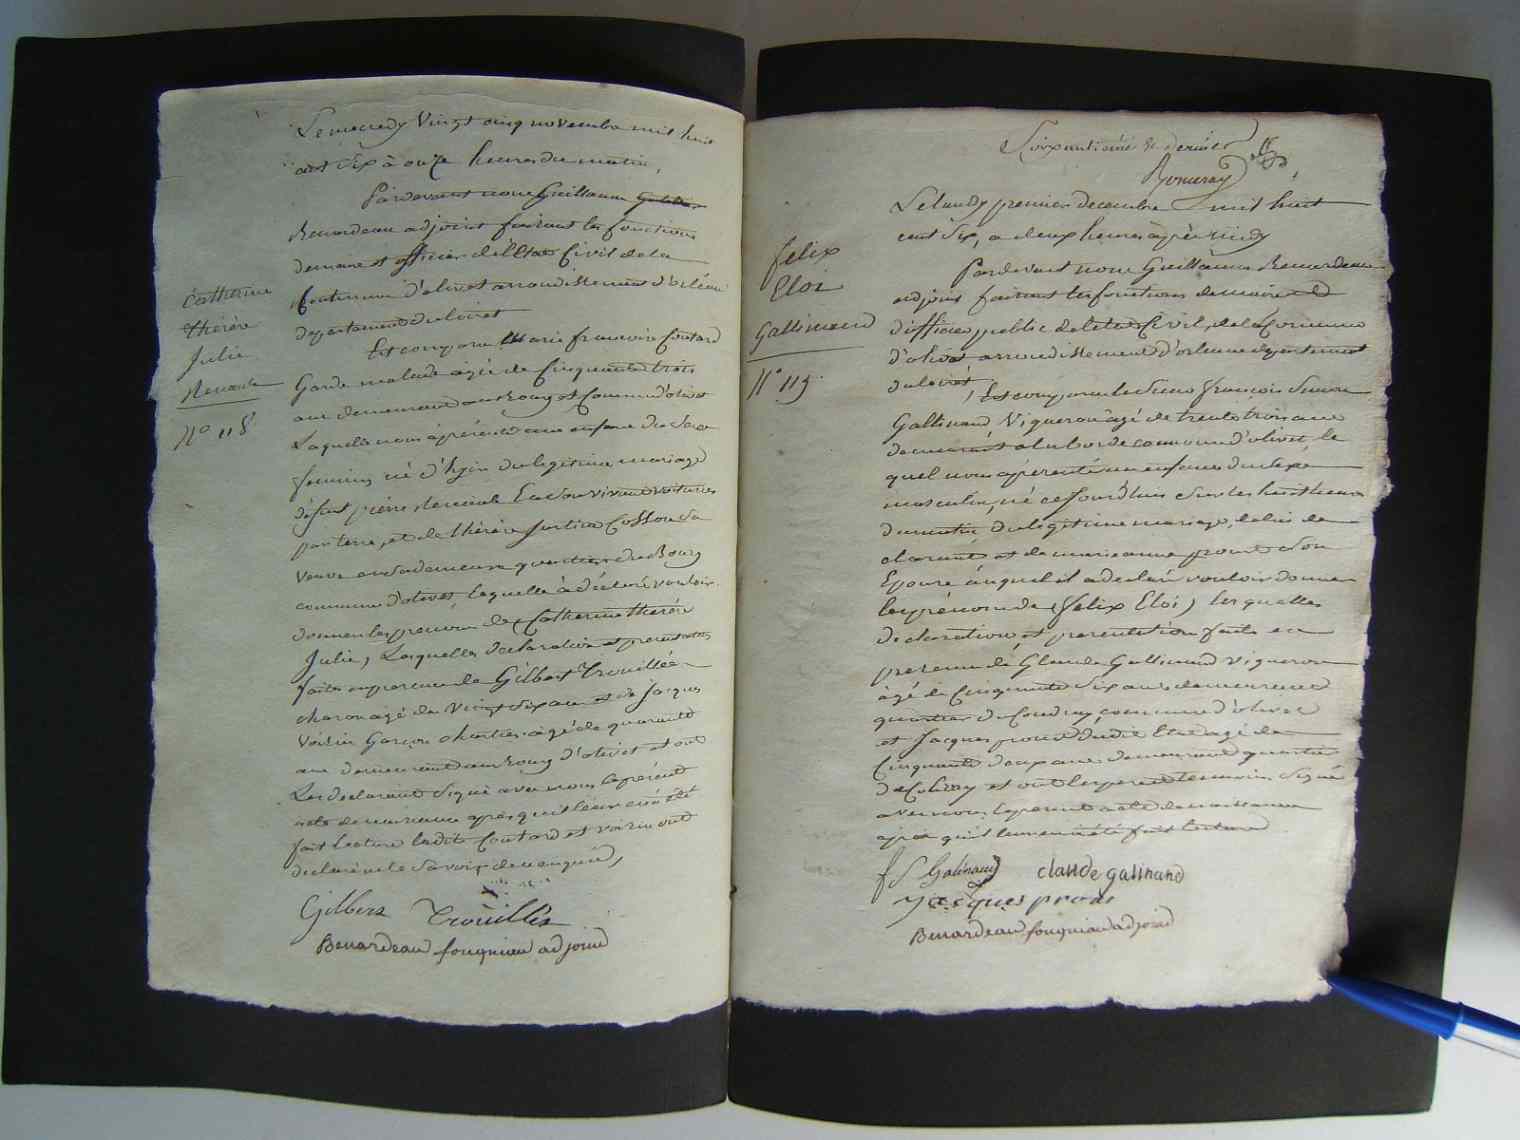 Le mecredy Vingt cinq novembre mil huit
cent Six à onze heures du matin,
Pardevant nous Guillaume
Benardeau adjoint faisant les fonctions
demaire et officier de l'Etat Civil de la
Commune d'olivet arrondissement d'orléans
departement du loiret
Est comparu Marie francoise Coutard
Garde malade agée de Cinquante trois
ans demeurant au Bourg et Commune d'olivet
Laquelle nous à présenté une enfant du Sexe
feminin né d'hyer du legitime mariage
défunt pierre Son vivant voiturier
par terre, et de thérèse Cosson Sa
veuve en Sa demeure quartier du Bourg
commune d'olivet, laquelle à déclaré vouloir
donner les prenoms de (Catherine therèse
Julie, Lesquelles declaration et presentation
faites en presence de Gilbert Trouillé
charon agé de Vingt Six ans et de Jacques
Voisin Garçon charetier agé de quarante
ans demeurant au Bourg d'olivet et ont
Les declarant Signé avec nous le présent
acte de naissance après qu'il leur en à été
fait Lecture ladite Coutard et voisin ont
declaré ne le Savoir de ce enquis,
Gilbert Trouillé
Benardeau fougniau adjoint
Catherine
thérèse
Julie
N° 118
Soixantième & dernier
Le lundy premier decembre mil huit
cent Six, a deux heures après midy
Pardevant nous Guillaume Benardeau
adjoint faisant les fonctions de maire et
d'officier public de letat Civil, de la Commune
d'olivet arrondissement d'orleans departement
du loiret, Est comparu le Sieur françois Simon
Gallinand Vigneron âgé de trente trois ans
demeurant a la borde commune d'olivet, le
quel nous a presenté un enfant du Sexe
masculin, né ce Jourd'huis Sur les huit heures
du matin du legitime mariage, de lui de
clarant et de marie anne proust Son
Epouse auquel il a declaré vouloir donner
les prénoms de (felix Eloi) lesquelles
declaration et presentation faites en
presence de Glaude Gallinand vigneron
âgé de Cinquante Six ans demeurant
quartier du Coudray commune d'olivet
et Jacques proust dudit Etat agé de
Cinquante deux ans demeurant quartier
de Coudray et ont les present temoins Signé
avec nous le present acte de naissance
après qu'il leur en à été fait lecture
f S Galinand claude galinand
Jacques proust
Benardeau fougniau adjoint
felix
Eloi
Gallinand
N° 119